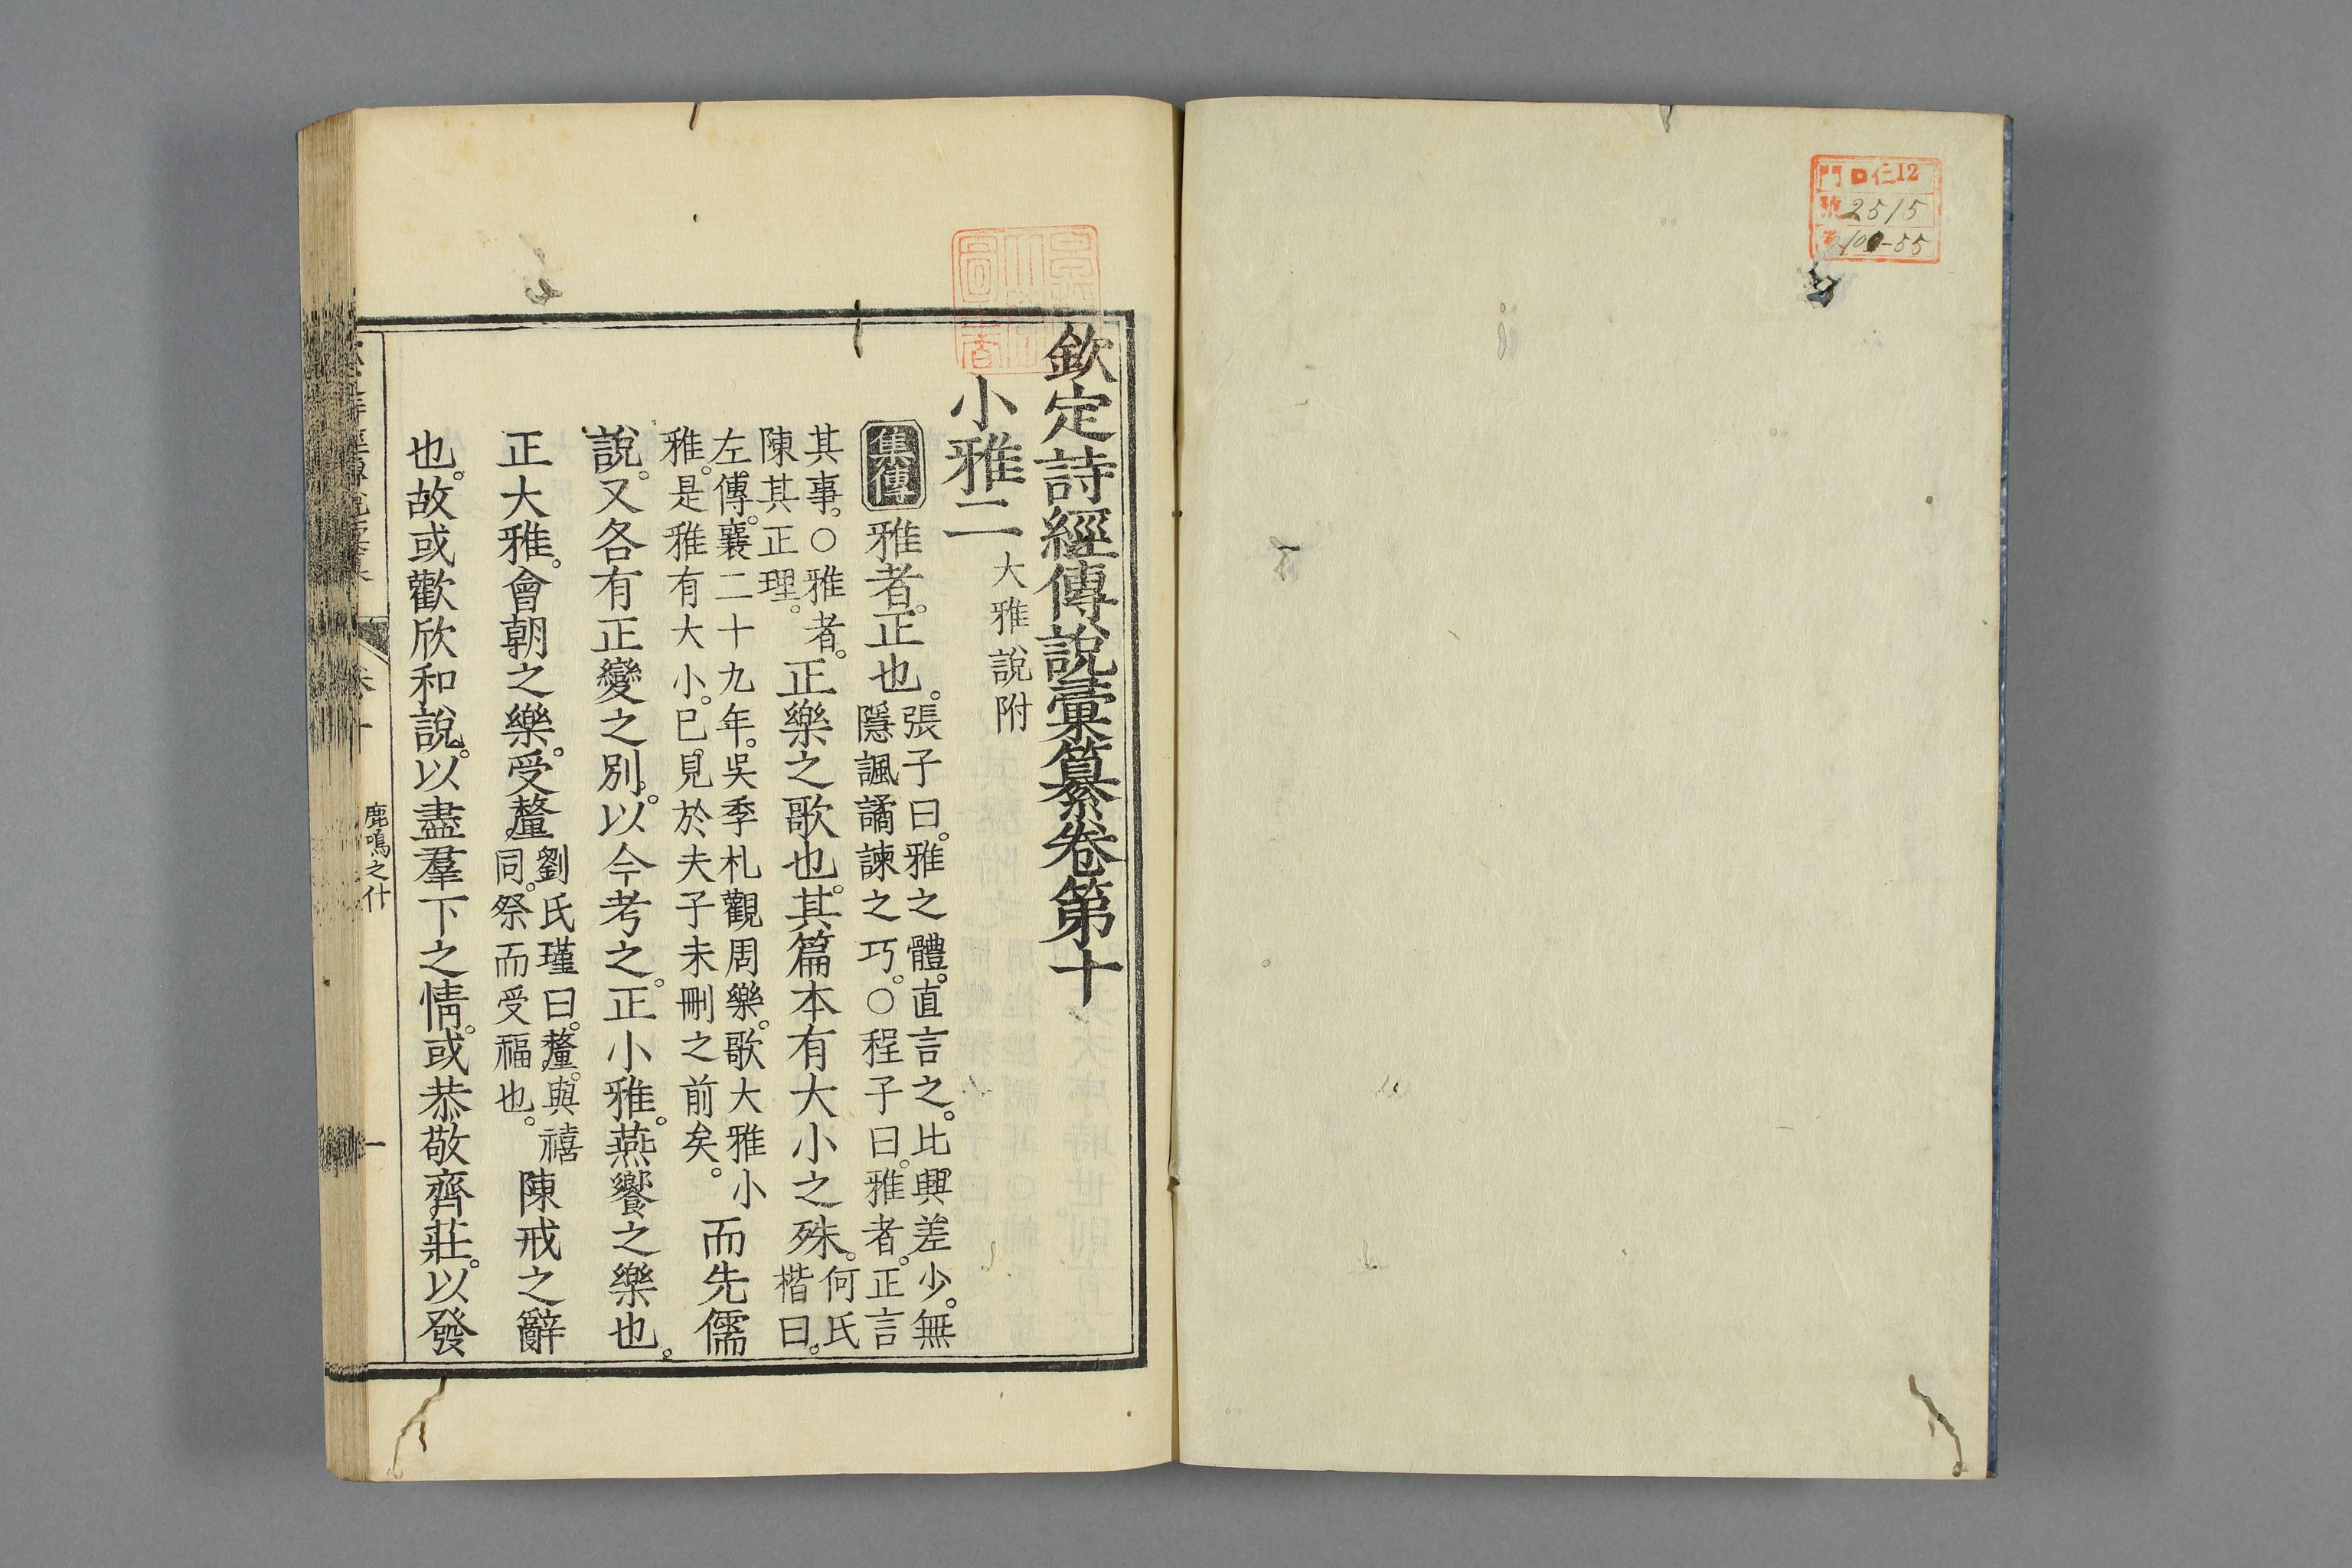 門 口仁12
號 2515
欽定詩經傳說彙纂卷第十
小雅二 大雅說附
集傳 雅者。正也。張子曰。雅之體。直言之。比興差少。無
隱諷譎諫之巧。○程子曰。雅者。正言
其事。○雅者。
陳其正理。
正樂之歌也。其篇本有大小之殊。何氏
楷曰。
左傳。襄二十九年。吳季札觀周樂。歌大雅小
雅。是雅有大小。已見於夫子未刪之前矣。
而先儒
說。又各有正變之別。以今考之。正小雅。燕饗之樂也。
正大雅。會朝之樂。受釐劉氏瑾曰。釐。與禧
同。祭而受福也。
陳戒之辭
也。故或歡欣和說。以盡羣下之情。或恭敬齊莊。以發
卷十
鹿鳴之什
一